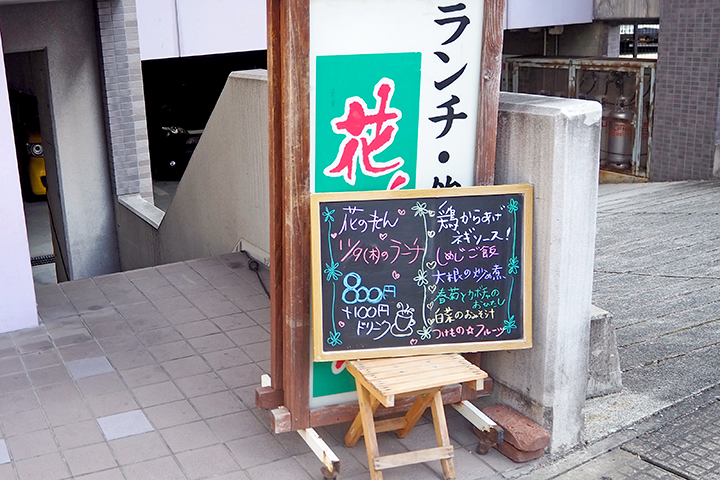 ランチ・
花
花のれん
11/9(木)のランチ
800円
+100円
ドリンク
鶏からあげ
ネギソース!
しめじご飯
大根の炒め煮
春菊とカボチャの
おひたし
白菜のおみそ汁
つけもの☆フルーツ